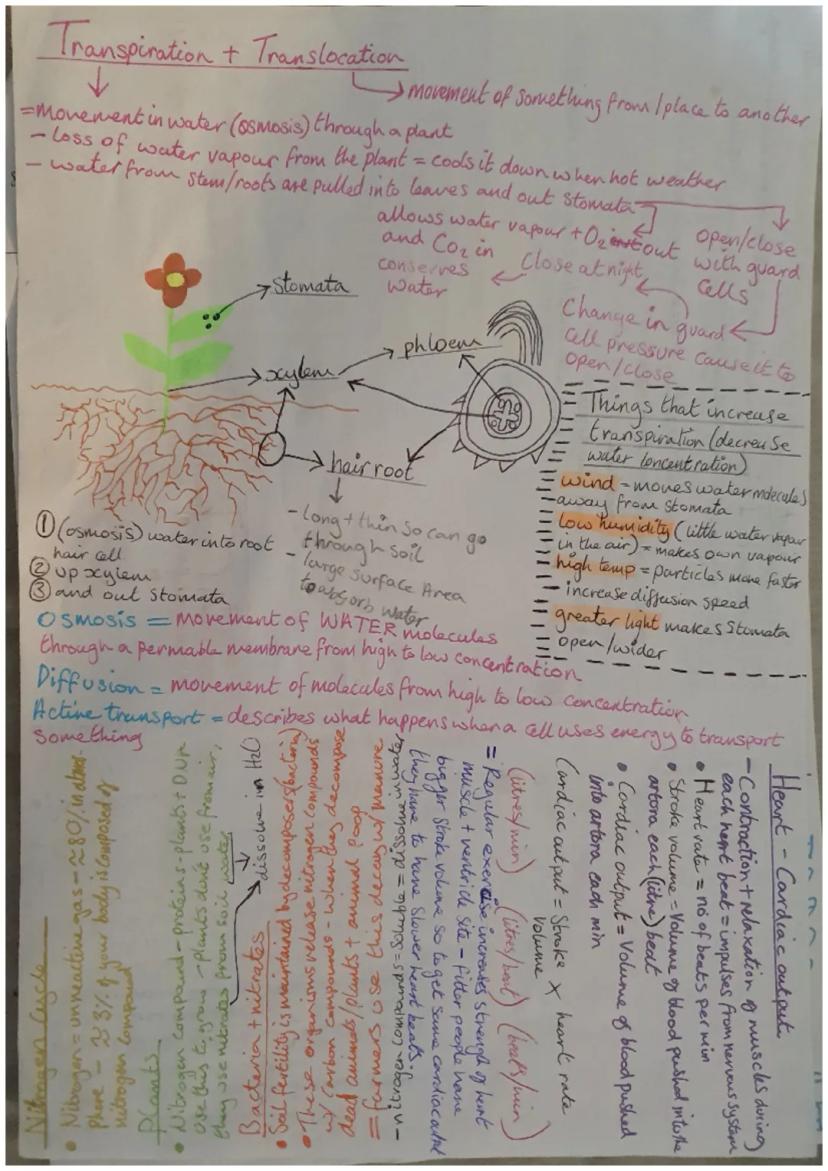 Transpiration + Translocation
movement of something from 1 place to another
= movement in water (osmosis) through a plant
- Loss of water vapour from the plant = cools it down when hot weather
- water from stem/roots are pulled into leaves and out stomata
allows water vapour + O2 out
and CO2 in
conserves
water
Close at night
open/close
with guard
cells
Change in guard
cell pressure cause it to
open/close
stomata
xylem
phloem
hair root
- long + thin so can go
through soil
- large surface Area
to absorb water
① (osmosis) water into root
hair cell
② up xylem
③ and out stomata
Things that increase
transpiration (decrease
water concentration)
wind - moves water molecules
away from stomata
low humidity (little water vapour
in the air) = makes own vapour
high temp = particles move faster
- increase diffusion speed
greater light makes stomata
open/wider
Osmosis = movement of WATER molecules
through a permable membrane from high to low concentration
Diffusion = movement of molecules from high to low concentration
Active transport = describes what happens when a cell uses energy to transport
something
Heart - Cardiac output
- Contraction + relaxation of muscles during
each heart beat = impulses from nervous system
• Heart rate = no of beats per min
• Stroke volume = Volume of blood pushed into the
artora each (litre) beat
• Cardiac output = Volume of blood pushed
into artora each min
Cardiac output = Stroke x heart rate
volume
(litres/min) (litres/beat) (beats/min)
= Regular exercise increases strength of heart
muscle + ventricle site - fitter people have
bigger stroke volume so to get same cardiac output
they have to have slower heart beats.
Nitrogen Cycle
• Nitrogen = unreactive gas - ≈80% in atmos-
phere - ≈3% of your body is composed of
nitrogen compound
Plants
• Nitrogen compound - proteins - plants + DNA
use this to grow - plants dont use from air,
they use nitrates from soil water
dissolve in H2O
Bacteria + nitrates
• Soil fertility is maintained by decomposers (bacteria)
• These organisms release nitrogen compounds
w/ carbon compounds - when they decompose
dead animals/plants + animal poop
= farmers use this decay w/ manure
- nitrogen compounds = soluble = dissolve in water